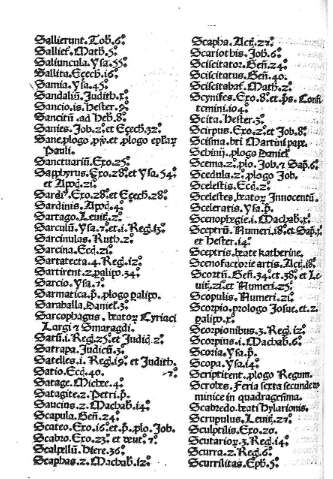 Sallierunt. Tob. 6°
Salliet. Math. 5°
Saliuncula. Ysa. 55°
Sallita. Ezech. 16°
Samia. Ysa. 45°
Sandaliū. Judith. x°
Sancio. is. Hester. 9°
Sancitū. ad Heb. 8°
Sanies. Job. 2° et Ezech. 32°
Sane. plogo.
Pauli.
Sanctuariū. Exo. 25°
Sapphyrus. Exo. 28° et Ysa. 54°
et Apoc. 21°
Sardi° Exo. 28° et Ezech. 28°
Sardinis. Apoc. 4°
Sartago. Levit. 2°
Sarculū. Ysa. 7° et. i. Reg. 13°
Sarcinulas. Ruth. 2°
Sarcina. Ecci. 21°
Sartatecta. 4. Reg. 12°
Sartirent. 2. palip. 34°
Sarcio. Ysa. 7°
Sarmatica. p̄. plogo palip.
Saraballa. Daniel. 3°
Sarcophagus. Cyriaci
Largi et Smaragdi.
Satū. i. Reg. 25° et Judic. 2°
Satrapa. Judicū. 3°
Satelles. i. Reg. 19° et Judith.
Satio. Eccl. 40° 7°
Satage. Michee. 4°
Satagite. 2° Petri. p̄.
Saucius. 2. Machab. 14°
Scapula. Gen. 24°
Scateo. Exo. 16° et. p̄. plo. Job.
Scabro. Exo. 23° et deut. 7°
Scalpellū. Hiere. 36°
Scaphas. 2. Machab. 12°
Scapha. Act. 27°
Scariothis. Job. 6°
Sciscitator. Gen. 24°
Sciscitatus. Gen. 40°
Sciscitabat. Math. 2°
Scynifes. Exo. 8° et. ps. Confi
temini. 104°
Scita. Hester. 3°
Scirpus. Exo. 2° et Job. 8°
Scisma. bti Martini pape.
plogo Daniel°
Scema. 2° plo. Job. 7 Sap. 6°
Scedula. 2° plogo. Job.
Scelestis. Ecci. 2°
Scelestus. beatorum Innocentū
Sceleratis. Ysa. p̄.
Scenophegie. i. Machab. x°
Sceptrū. Numeri. 18° et Sap.
et Hester. 14°
Sceptris. beate katherine.
Scenofactorie artis. Act. 18°
Scortū. Gen. 34° et. 38° et Le
uit. 21° et Numeri. 25°
Scopulis. Numeri. 21°
Scorpio. prologo Josue. et. 2°
palip. x°
Scorpionibus. 3. Reg. 12°
Scorpius. i. Machab. 6°
Scoria. Ysa. p̄.
Scopa. Ysa. 14°
Scriptirent. plogo Regum.
Scrobes. Feria sexta secunde do
minice in quadragesima.
Scabredo. beati Hylarionis.
Scrupulus. Levit. 27°
Sculptilis. Exo. 20°
Scutarior. 3. Reg. 14°
Scurra. 2. Reg. 6°
Scurrilitas. Eph. 5°